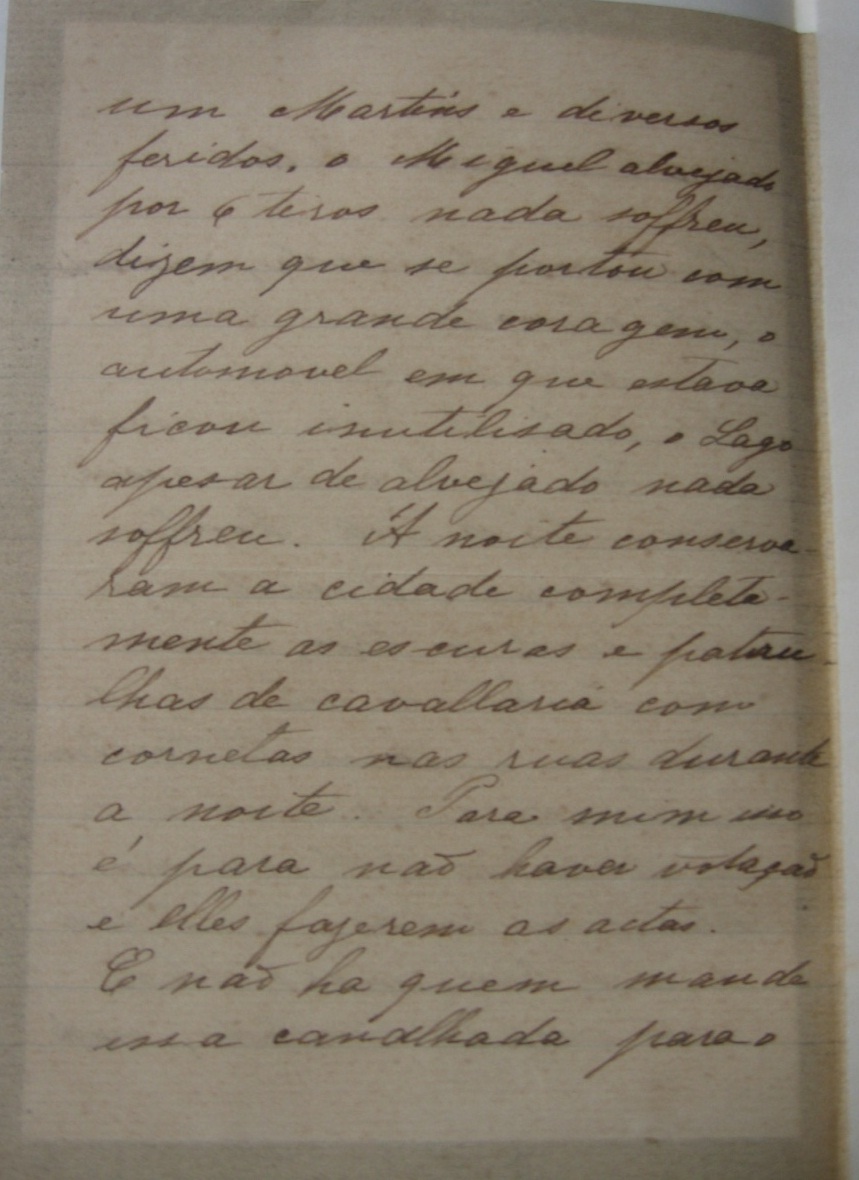 um Martins e diversos
feridos, o Miguel alvejado
por 6 tiros nada soffreu,
dizem que se portou com
uma grande coragem, o
automovel em que estava
ficou inutilisado, o Lago
apesar de alvejado nada
soffreu. Á noite conserva-
ram a cidade completa-
mente as escuras e patru-
lhas de cavallaria com
cornetas nas ruas durante
a noite. Para mim isso
é para não haver votação
e elles fazerem as actas.
E não ha quem mande
essa canalhada para o